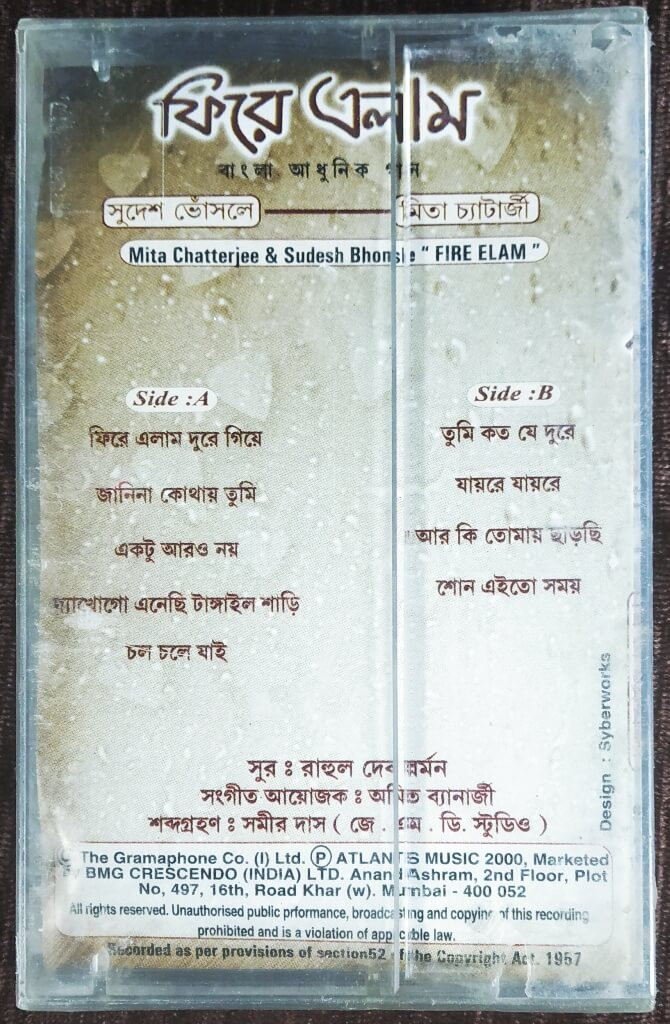 ফিরে এলাম
বাংলা আধুনিক গান
সুদেশ ভোঁসলে
মিতা চ্যাটার্জী
Mita Chatterjee & Sudesh Bhonsle " FIRE ELAM "
Side :A
ফিরে এলাম দুরে গিয়ে
জানিনা কোথায় তুমি
একটু আরও নয়
দ্যাখোগো এনেছি টাঙ্গাইল শাড়ি
চল চলে যাই
Side :B
তুমি কত যে দুরে
যায়রে যায়রে
আর কি তোমায় ছাড়ছি
শোন এইতো সময়
Design : Syberworks
সুর ঃ রাহুল দেব বর্মন
সংগীত আয়োজক ঃ অমিত ব্যানার্জী
শব্দগ্রহণ ঃ সমীর দাস ( জে . এম . ডি. স্টুডিও )
The Gramaphone Co. (I) Ltd. Ⓟ ATLANTIS MUSIC 2000, Marketed
BMG CRESCENDO (INDIA) LTD. Anand Ashram, 2nd Floor, Plot
No, 497, 16th, Road Khar (w). Mumbai - 400 052
All rights reserved. Unauthorised public prformance, broadcasting and copying of this recording
prohibited and is a violation of applicable law.
Recorded as per provisions of section52 of the Copyright Act. 1957